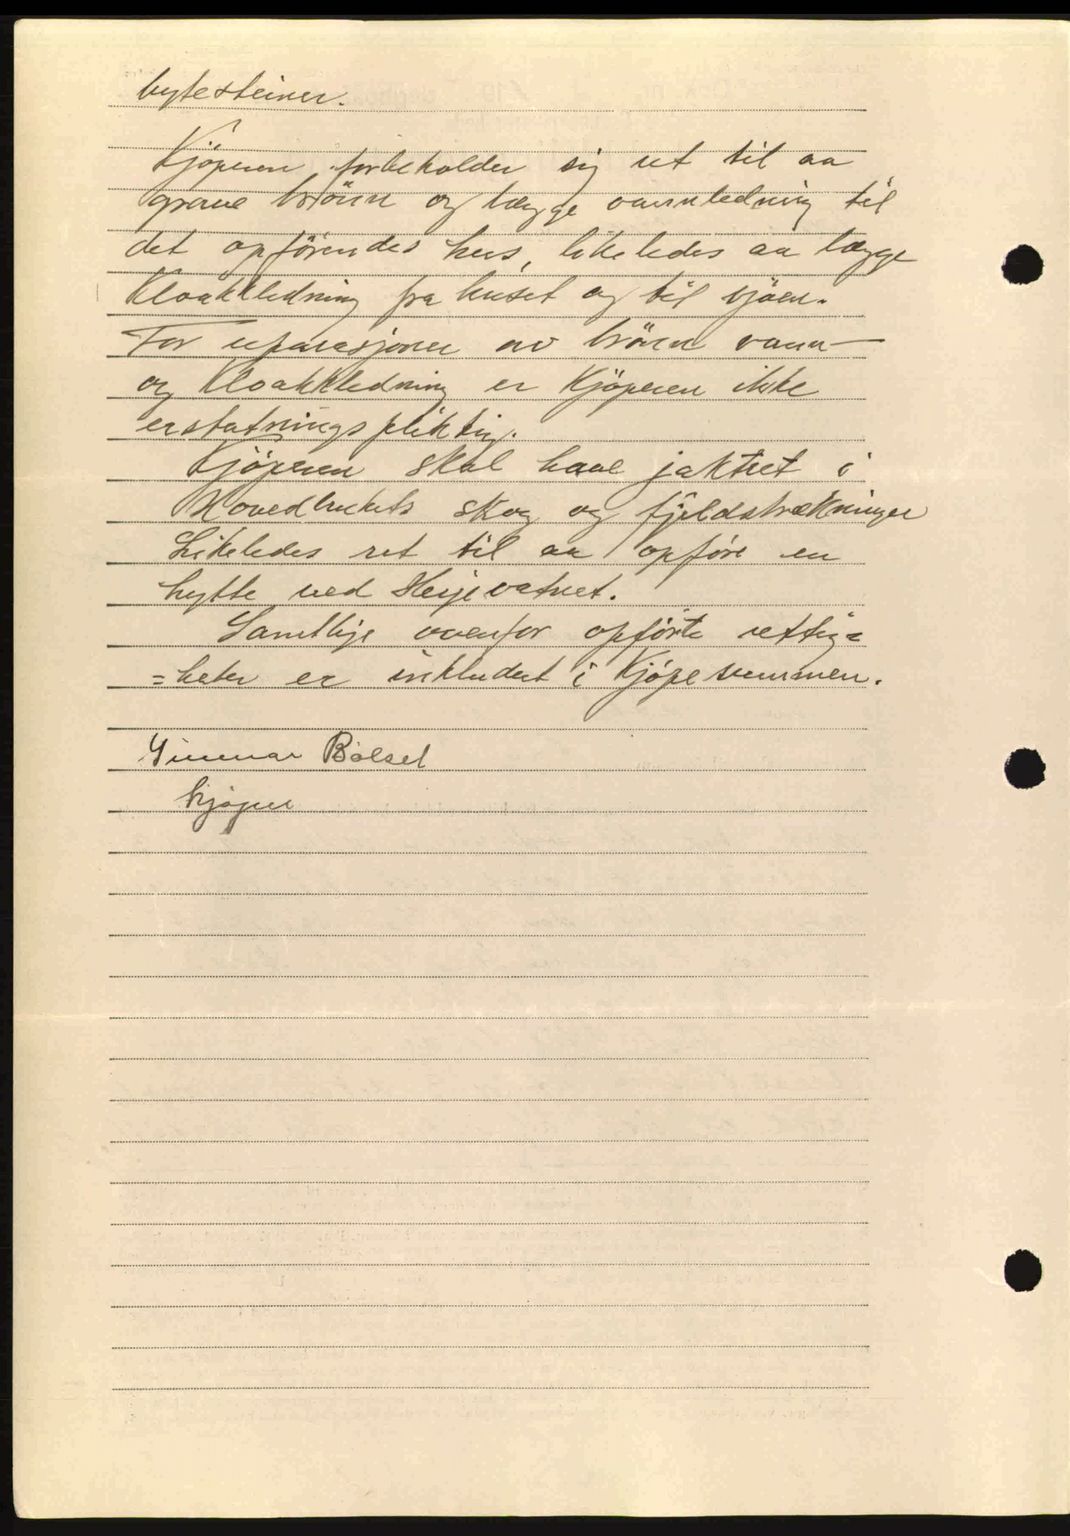 bytesteiner.
Kjöperen forbeholder sig ret til aa
grave brönn og lægge vannledning til
det opförendes hus, likeledes aa lægge
kloakkledning fra huset og til sjöen.
For reparasjoner av brönn vann-
og kloakkledning er kjöperen ikke
erstatningspliktig.
Kjöperen skal have jaktret i
Hovedbrukets skog og fjeldstrækninger
Likeledes ret til aa opföre en
hytte ved
Samtlige ovenfor opförte rettig=
=heter er inkludert i kjöpesummen.
Gunnar Bolset
kjöper